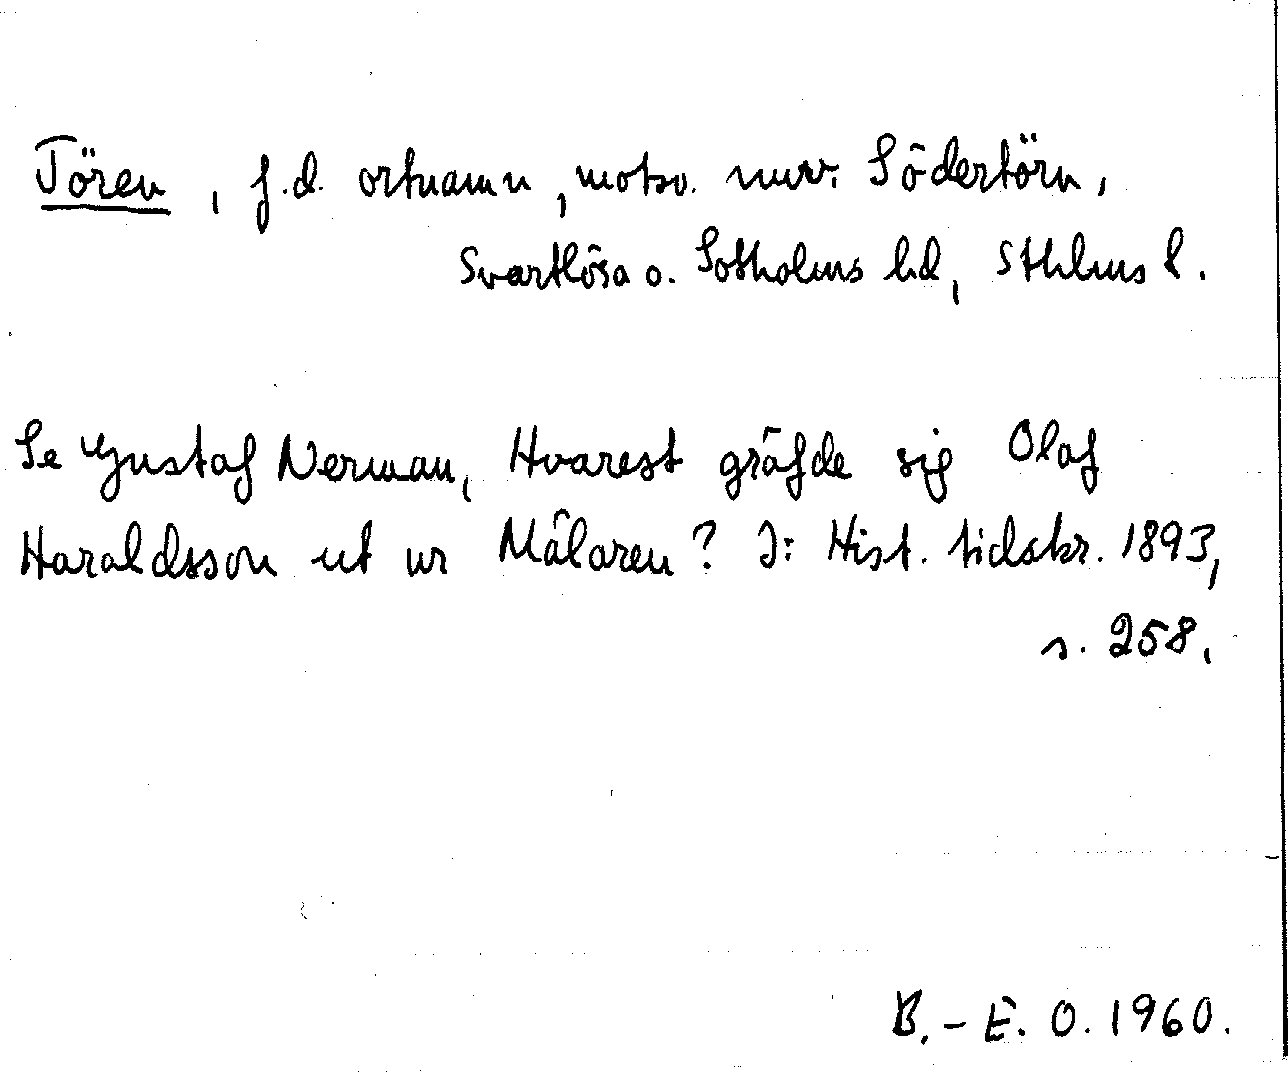 Tören, f.d. ortnamn, motsv. nuv. Södertörn,
Svartlösa o. Sotholms hd, Sthlms l.
Se Gustaf Nerman, Hvarest gräfde sig Olaf
Haraldsson ut ur Mälaren? I: Hist. tidskr. 1893,
s. 258.
B.-E. O. 1960.